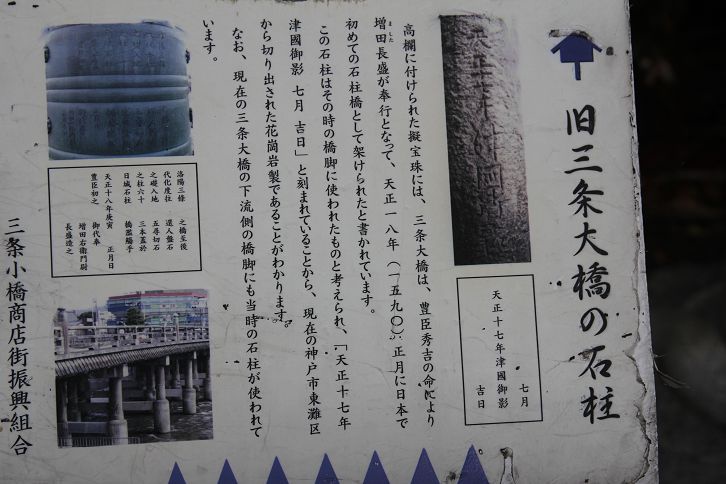 旧三条大橋の石柱
天正十七年津國御影
七月
吉日
高欄に付けられた擬宝珠には、三条大橋は、豊臣秀吉の命により
増田長盛が奉行となって、天正一八年(一五九〇)正月に日本で
ました
初めての石柱橋として架けられたと書かれています。
この石柱はその時の橋脚に使われたものと考えられ、「天正十七年
津國御影 七月 吉日」と刻まれていることから、現在の神戸市東灘区
から切り出された花崗岩製であることがわかります。
なお、現在の三条大橋の下流側の橋脚にも当時の石柱が使われて
います。
洛陽三條 之橋至後
代化度往 還人盤石
之礎入地 五尋切石
之柱六十 三本蓋於
日域石柱 橋濫觴乎
天正十八年庚寅 正月日
豊臣初之 御代奉
増田右衛門尉
長盛造之
三条小橋商店街振興組合